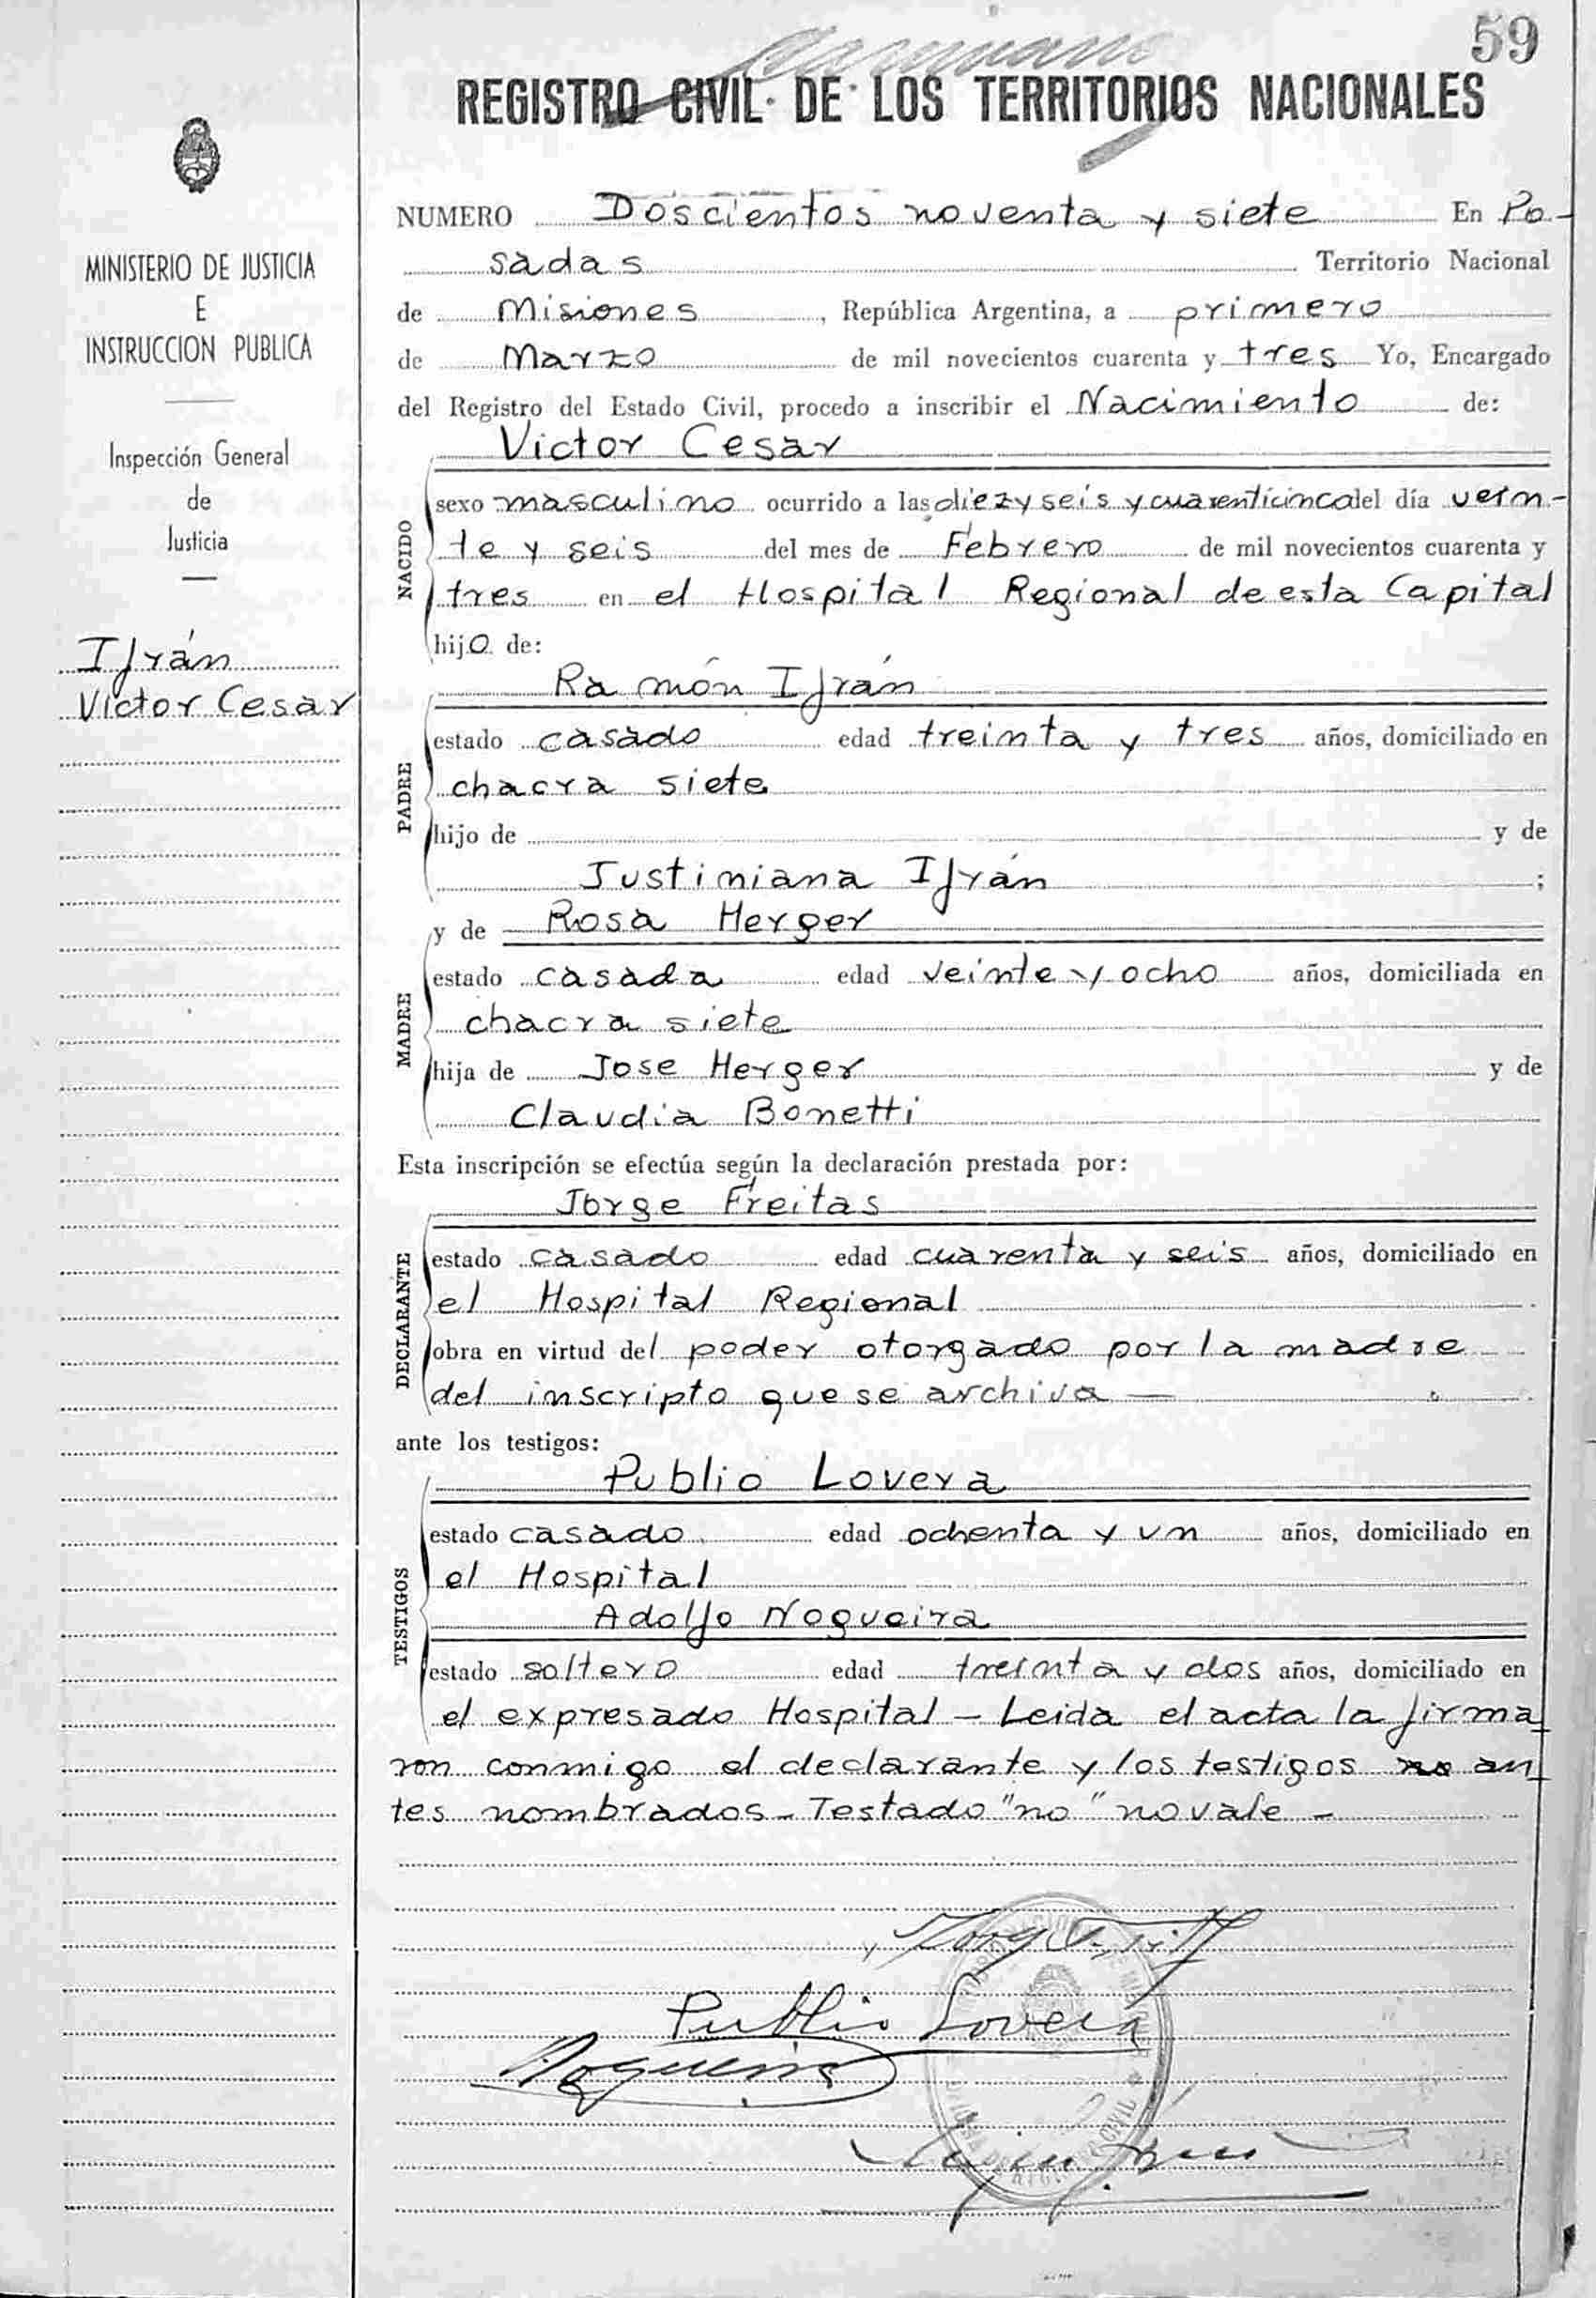 59
REGISTRO CIVIL DE LOS TERRITORIOS NACIONALES
MINISTERIO DE JUSTICIA
E
INSTRUCCION PUBLICA
Inspección General
de
Justicia
Ifrán
Victor Cesar
NUMERO Doscientos noventa y siete En Po-
sadas Territorio Nacional
de Misiones, República Argentina, a primero
de Marzo de mil novecientos cuarenta y tres Yo, Encargado
del Registro del Estado Civil, procedo a inscribir el Nacimiento de:
Victor Cesar
NACIDO
sexo masculino ocurrido a las diez y seis y cuarenticinco del día vein-
te y seis del mes de Febrero de mil novecientos cuarenta y
tres en el Hospital Regional de esta Capital
hijo de:
Ramón Ifrán
PADRE
estado casado edad treinta y tres años, domiciliado en
chacra siete
hijo de y de
Justiniana Ifrán ;
y de Rosa Herger
MADRE
estado casada edad veinte y ocho años, domiciliada en
chacra siete
hija de Jose Herger y de
Claudia Bonetti
Esta inscripción se efectúa según la declaración prestada por:
Jorge Freitas
DECLARANTE
estado casado edad cuarenta y seis años, domiciliado en
el Hospital Regional
obra en virtud del poder otorgado por la madre
del inscripto que se archiva —
ante los testigos:
Publio Lovera
TESTIGOS
estado casado edad ochenta y un años, domiciliado en
el Hospital
Adolfo Nogueira
estado soltero edad treinta y dos años, domiciliado en
el expresado Hospital – Leida el acta la firma
ron conmigo el declarante y los testigos no an
tes nombrados – Testado "no" no vale –
Publio Lovera
Nogueira